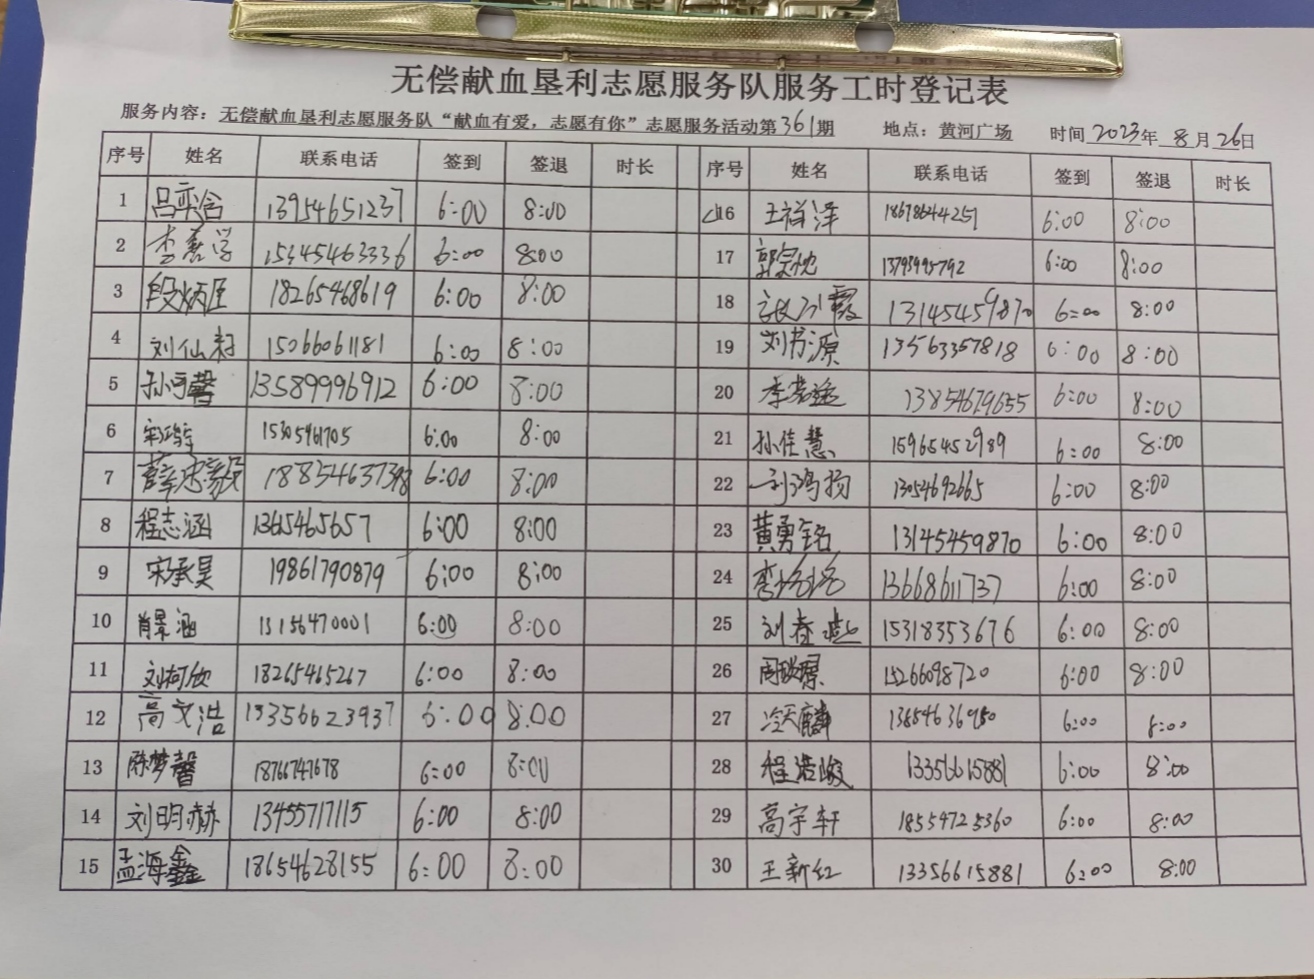 无偿献血垦利志愿服务队服务工时登记表
服务内容：无偿献血垦利志愿服务队“献血有爱，志愿有你”志愿服务活动第361期 地点：黄河广场 时间 2023年 8月 26日
序号 姓名 联系电话 签到 签退 时长 序号 姓名 联系电话 签到 签退 时长
1 吕奕含 13954651237 6:00 8:00 16 王祥泽 18678644251 6:00 8:00
2 15345463336 6:00 8:00 17 6:00 8:00
3 段炳匡 18265468619 6:00 8:00 18 13145459870 6:00 8:00
4 15066061181 6:00 8:00 19 刘书源 13563357818 6:00 8:00
5 孙可馨 13589996912 6:00 8:00 20 13854679655 6:00 8:00
6 6:00 8:00 21 孙佳慧 15965452989 6:00 8:00
7 薛忠毅 18854637398 6:00 8:00 22 刘鸿扬 13054692665 6:00 8:00
8 程志涵 1365465657 6:00 8:00 23 黄勇铭 13145459870 6:00 8:00
9 宋承昊 19861790879 6:00 8:00 24 13668611737 6:00 8:00
10 肖景涵 13156470001 6:00 8:00 25 15318353676 6:00 8:00
11 刘柯欣 18265465267 6:00 8:00 26 15266098720 6:00 8:00
12 高文浩 13356623937 6:00 8:00 27 冷天麟 6:00 8:00
13 陈梦馨 18766747678 6:00 8:00 28 程浩峻 13356615881 6:00 8:00
14 刘明赫 13455717115 6:00 8:00 29 高宇轩 18554725360 6:00 8:00
15 孟海鑫 18654628155 6:00 8:00 30 王新红 13356615881 6:00 8:00